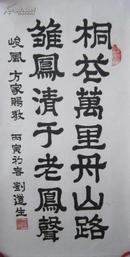 桐花萬里丹山路
雛鳳清于老鳳聲
峻風方家賜教 丙寅初春 劉道生